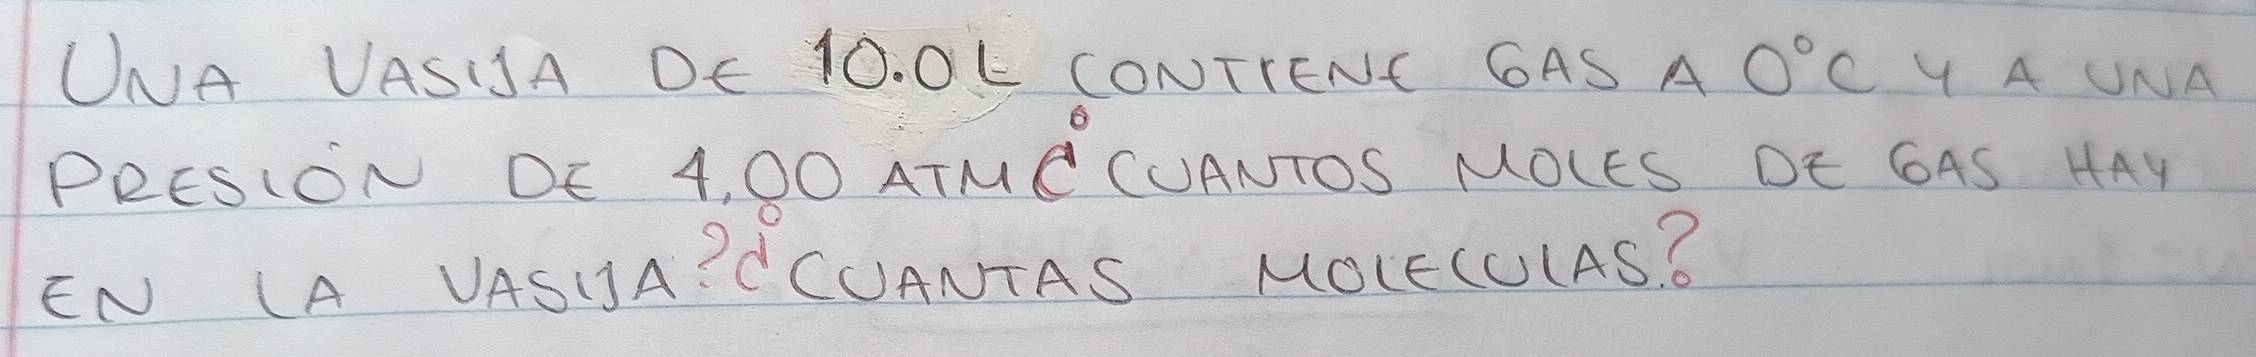 UNA VASIJA DE 10.0L CONTIENE GAS A 0°C Y A UNA
PRESIÓN DE 4.00 ATM ¿CUANTOS MOLES DE GAS HAY
EN LA VASIJA? ¿CUANTAS MOLECULAS?